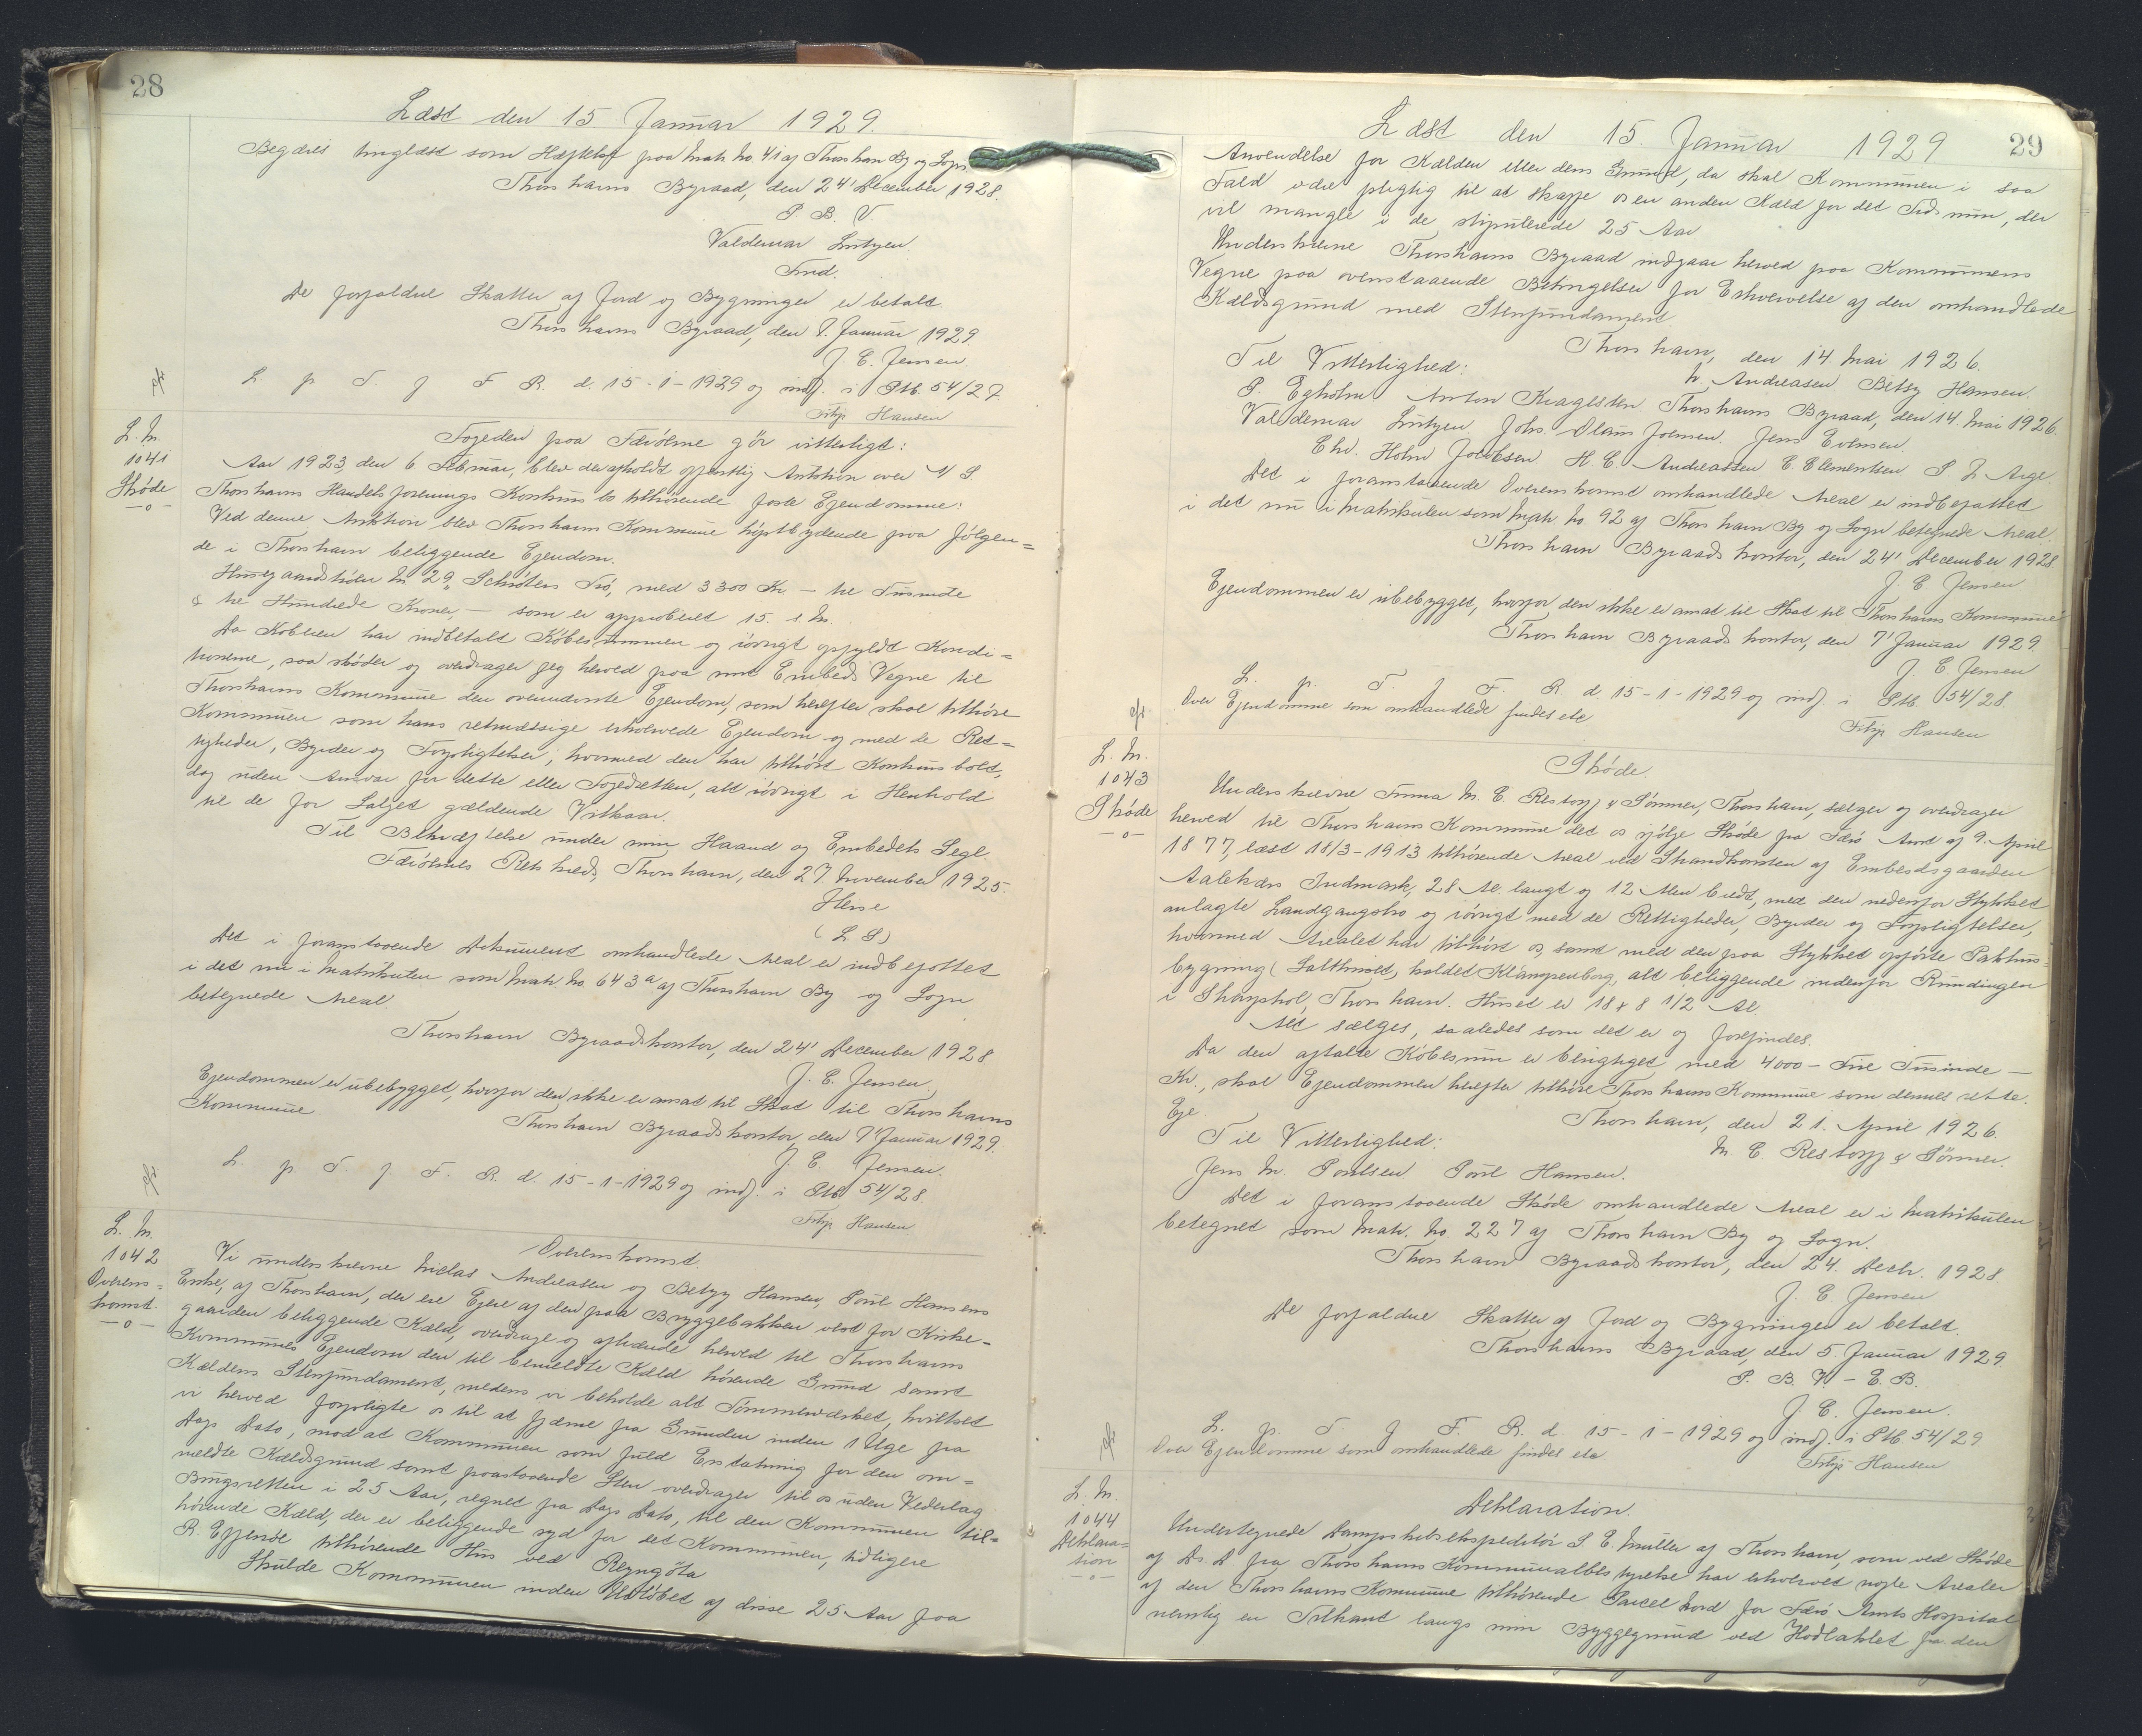 28
Læst den 15 Januar 1929.
Begæres tinglæst som Hæftelse paa Matr. No. 41 af Thorshavn By og Sogn.
Thorshavns Byraad, den 24' December 1928.
P. B. V.
Valdemar Lützen
Fmd.
De forfaldne Skatter af Jord og Bygninger er betalt.
Thorshavns Byraad, den 7. Januar 1929.
J. C. Jensen.
L. p. T. f. F. R. d. 15-1-1929 og indf. i Ptb. 54/27.
Filip Hansen
L. M.
1041
Skøde
-o-
Fogeden paa Færöerne gör vitterligt:
Aar 1923, den 6 Februar, blev der afholdt offentlig Auktion over A/S
Thorshavns Handelsforenings Konkursbo tilhörende faste Ejendomme:
Ved denne Auktion blev Thorshavns Kommune höjstbydende paa fölgen=
de i Thorshavn beliggende Ejendom.
Husegaardstiden No 29, Schröters Trö, med 3300 Kr - tre Tusinde
& tre Hundrede Kroner, - som er approberet 15. s. M.
Da Köberen har indbetalt Köbesummen og iövrigt opfyldt Kondi=
tionerne, saa skøder og overdrager jeg herved paa mit Embeds Vegne til
Thorshavns Kommune den ovennævnte Ejendom, som herefter skal tilhöre
Kommunen som hans retmæssige erhvervede Ejendom og med de Ret=
tigheder, Byrder og Forpligtelser, hvormed den har tilhört Konkursboet,
dog uden Ansvar for dette eller Fogedretten, alt iövrigt i Henhold
til de for Salget gældende Vilkaar.
Til Bekræftelse under min Haand og Embedets Segl.
Færöernes Retskreds, Thorshavn, den 27. November 1925.
(L. S.)
Det i foranstaaende Dokument omhandlede Areal er indbefattet
i det nu i Matrikulen som Matr. No. 643a af Thorshavn By og Sogn
betegnede Areal.
Thorshavn Byraadskontor, den 24' December 1928
J. C. Jensen.
Ejendommen er ubebygget, hvorfor den ikke er ansat til Skat til Thorshavns
Kommune.
Thorshavn Byraadskontor, den 7' Januar 1929.
J. C. Jensen.
L. p. T. f. F. R. d. 15-1-1929 og indf. i Ptb. 54/28.
Filip Hansen
L. M.
1042
Overens=
komst.
-o-
Overenskomst.
Vi underskrevne Niclas Andreasen og Betzy Hansen, Poul Hansens
Enke, af Thorshavn, der ere Ejere af den paa Bryggebakken vest for Kirke=
gaarden beliggende Kæld, overdrage og afhænde herved til Thorshavns
Kommunes Ejendom den til bemeldte Kæld hörende Grund samt
Kældens Stenfundament, medens vi beholde alt Tömmerværket, hvilket
vi herved forpligte os til at fjærne fra Grunden inden 1 Uge fra
Dags Dato, mod at Kommunen som fuld Erstatning for den om=
meldte Kældsgrund samt paastaaende Sten overdrager til os uden Vederlag
Brugsretten i 25 Aar, regnet fra Dags Dato, til den Kommunen til=
hörende Kæld, der er beliggende syd for det Kommunen, tidligere
R. Effersöe tilhörende Hus ved Reyngöta
Skulde Kommunen inden Udlöbet af disse 25 Aar faa
29
Læst den 15. Januar 1929
Anvendelse for Kælden eller dens Grund, da skal Kommunen i saa
Fald være pligtig til at skaffe os en anden Kæld for det Tidsrum, der
vil mangle i de stipulerede 25 Aar
Underskrevne Thorshavns Byraad indgaar herved paa Kommunens
Vegne paa ovenstaaende Betingelser for Erhvervelse af den omhandlede
Kældsgrund med Stenfundament.
Thorshavn, den 14. Mai 1926.
Til Vitterlighed:
N. Andreasen Betsy Hansen.
P. Egholm Anton Kragesten. Thorshavns Byraad, den 14. Mai 1926.
Valdemar Lützen Johs Olaus Joensen. Jens Evensen.
Chr. Holm Jacobsen H. C. Andreassen C. Clementsen P L Arge.
Det i foranstaaende Overenskomst omhandlede Areal er indbefattet
i det nu i Matrikulen som Matr. No. 92 af Thorshavn By og Sogn betegnede Areal.
Thorshavn Byraadskontor, den 24' December 1928
J. C. Jensen
Ejendommen er ubebygget, hvorfor den ikke er ansat til Skat til Thorshavns Kommune
Thorshavn Byraadskontor, den 7' Januar 1929.
J. C Jensen
L. p. T. f. F. R. d. 15-1-1929 og indf. i Ptb. 54/28.
Over Ejendomme som omhandlede findes etc
Filip Hansen
L. M.
1043
Skøde
-o-
Skøde.
Underskrevne Firma M. C. Restorff & Sönner, Thorshavn, sælger og overdrager
herved til Thorshavns Kommune det os ifölge Skøde fra Færö Amt af 9. April
1877, læst 18/3-1913 tilhörende Areal ved Strandkanten af Embedsgaarden
Aalekærs Indmark, 28 Al. langt og 12 Alen bredt, med den nedenfor Stykket
anlagte Landgangsbro og iövrigt med de Rettigheder, Byrder og Forpligtelser,
hvormed Arealet har tilhört os, samt med den paa Stykket opförte Pakhus=
bygning (Salthuset) kaldet Klampenborg, alt beliggende nedenfor Rundingen
i Skarphol, Thorshavn. Huset er 18 x 8 1/2 Al.
Alt sælges, saaledes som det er og forefindes.
Da den aftalte Köbesum er berigtiget med 4000 - Fire Tusinde -
Kr., skal Ejendommen herefter tilhöre Thorshavns Kommune som dennes rette
Eje.
Thorshavn, den 21. April 1926.
Til Vitterlighed:
M. C. Restorff & Sönner.
Jens M. Poulsen Poul Hansen.
Det i foranstaaende Skøde omhandlede Areal er i Matrikulen
betegnet som Matr. No. 227 af Thorshavn By og Sogn.
Thorshavn Byraadskontor, den 24. Decbr. 1928
J. C. Jensen
De forfaldne Skatter af Jord og Bygninger er betalt.
Thorshavns Byraad, den 5. Januar 1929.
P. B. V. - E. B.
J. C. Jensen.
L. p. T. f. F. R. d. 15-1-1929 og indf. i Ptb. 54/29
Over Ejendomme som omhandlede findes etc
Filip Hansen
L. M.
1044
Deklara=
tion
-o-
Deklaration.
Undertegnede Dampskibsekspeditör S. E. Müller af Thorshavn, som ved Skøde
af D. D. fra Thorshavns Kommunalbestyrelse har erhvervet nogle Arealer
af den Thorshavns Kommune tilhörende Parcel Nord for Færö Amts Hospital
nemlig en Trekant langs min Byggegrund ved fra den